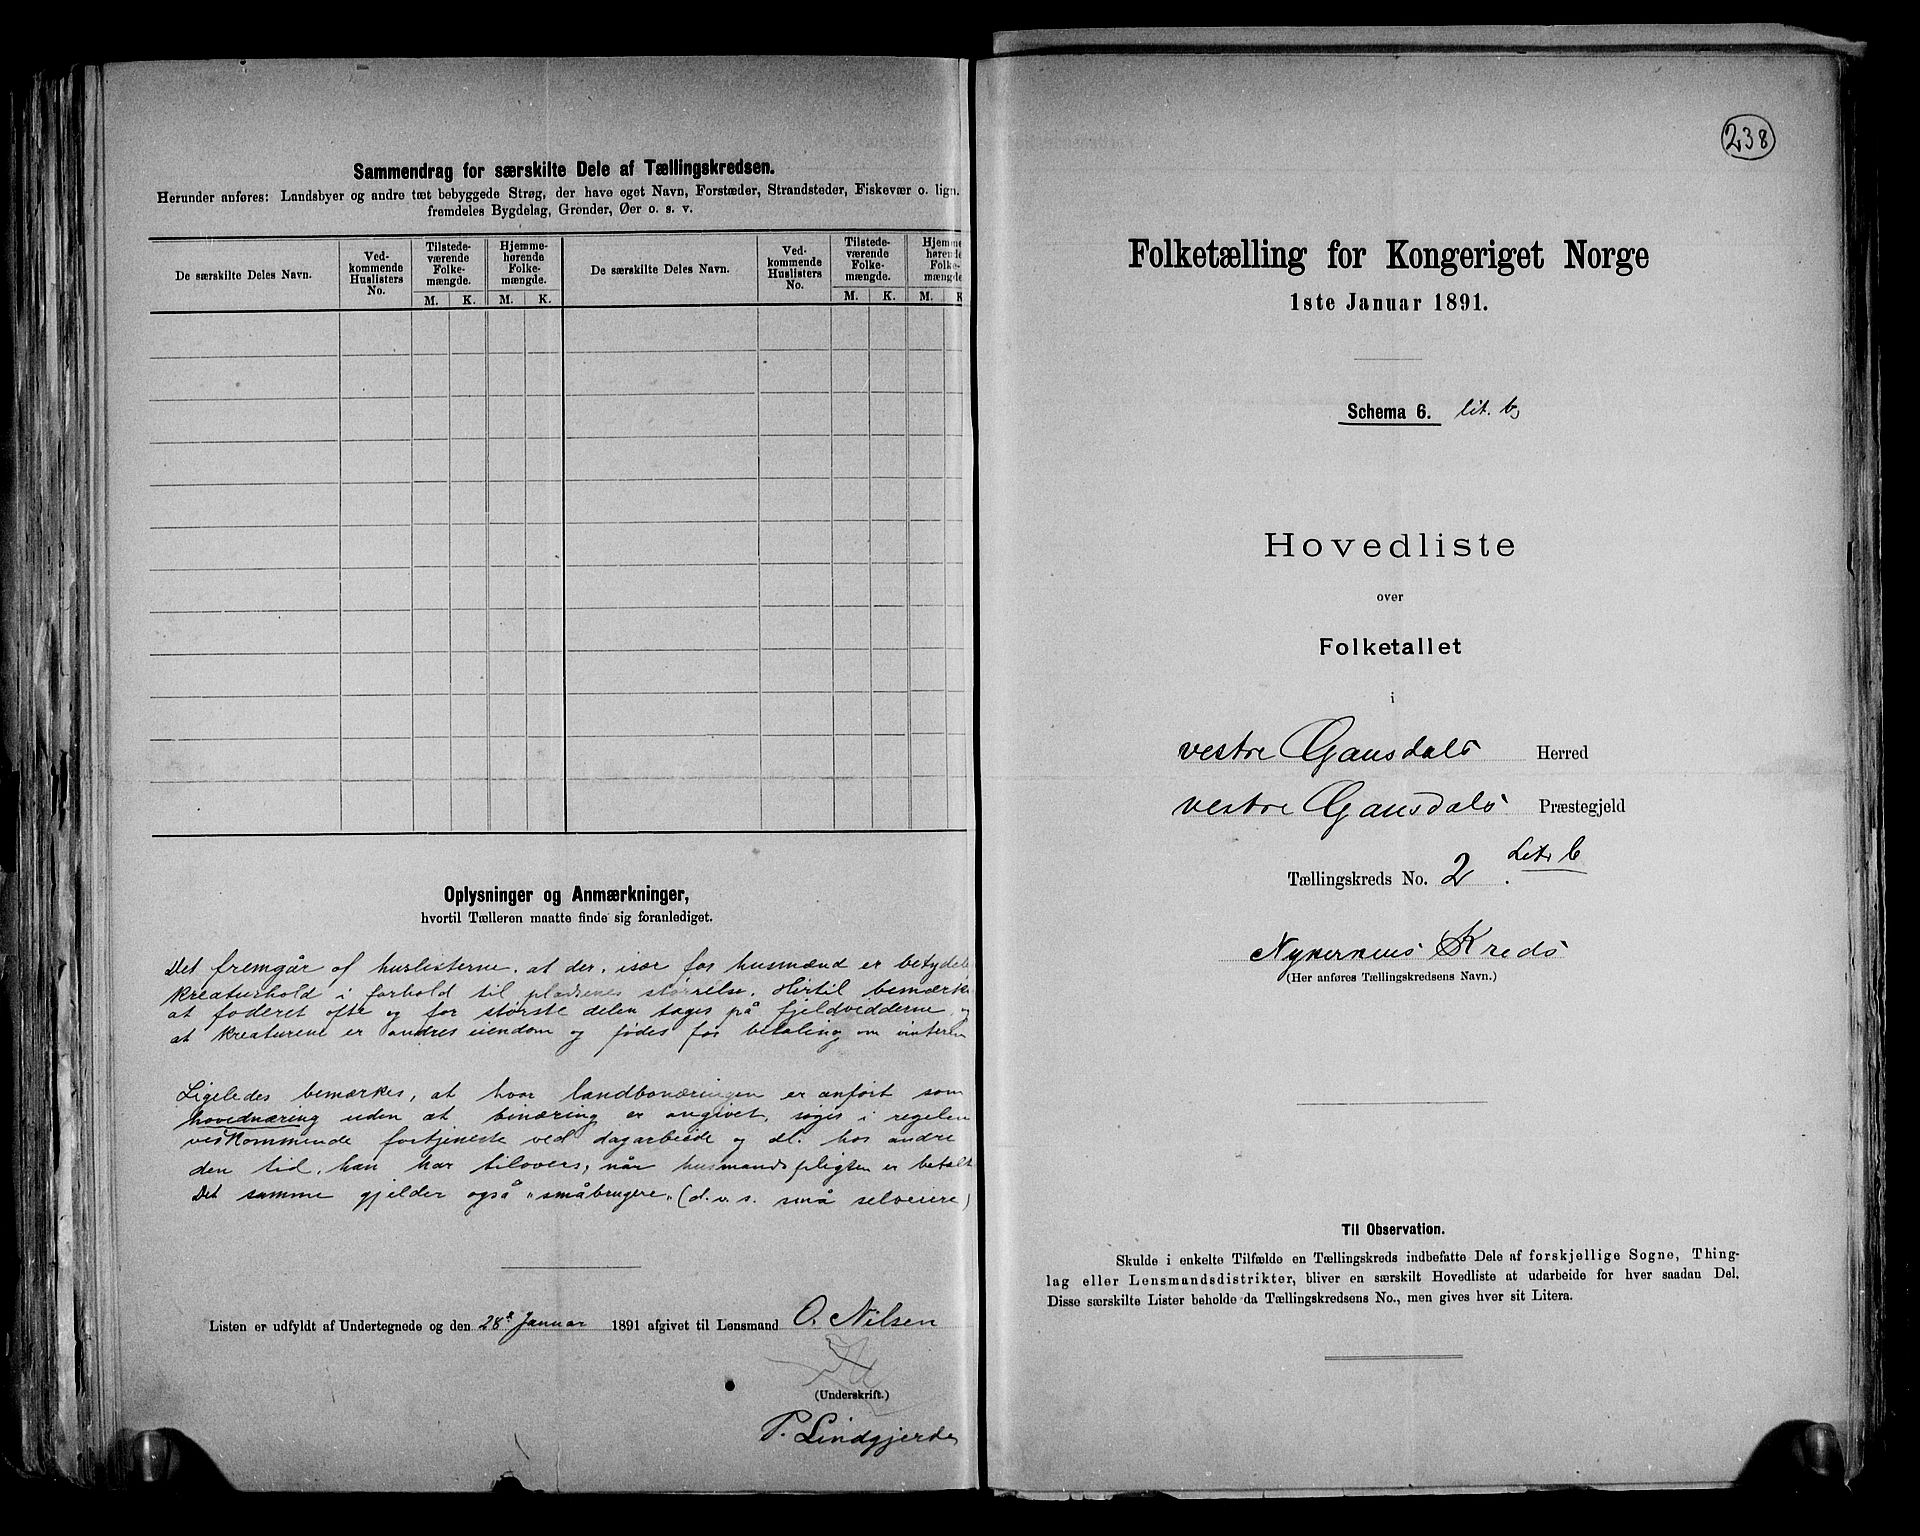 Sammendrag for særskilte Dele af Tællingskredsen.
Herunder anføres: Landsbyer og andre tæt bebyggede Strøg, der have eget Navn, Forstæder, Strandsteder, Fiskevær o. lign.
fremdeles Bygdelag, Grender, Øer o. s. v.
De særskilte Deles Navn. Ved-kommende Huslisters No. Tilstede-værende Folke-mængde. Hjemme-hørende Folke-mængde. De særskilte Deles Navn. Ved-kommende Huslisters No. Tilstede-værende Folke-mængde. Hjemme-hørende Folke-mængde.
M. K. M. K. M. K. M. K.
Oplysninger og Anmærkninger,
hvortil Tælleren maatte finde sig foranlediget.
Det fremgår af huslisterne, at der, især for husmænd er betydel
kreaturhold i forhold til pladsenes størrelse. Hirtil bemærk
at foderet ofte og for største delen tages på fjeldvidderne, og
at kreaturene er andres eiendom og fødes for betaling om vinteren
Ligeledes bemærkes, at hvor landbonæringen er anført som
hovednæring uden at binæring er angivet, søges i regelen
vedkommende fortjeneste ved dagarbeide og dl. hos andre
den tid, han har tilovers, når husmandspligten er betalt
Det samme gjelder også „småbrugere„ (d. v. s. små selveiere)
Listen er udfyldt af Undertegnede og den 28de Januar 1891 afgivet til Lensmand O. Nilsen
(Underskrift.)
P. Lindgjerde
238
Folketælling for Kongeriget Norge
1ste Januar 1891.
Schema 6. lit. b
Hovedliste
over
Folketallet
i
vestre Gausdals Herred
vestre Gausdals Præstegjeld
Lit. b
Tællingskreds No. 2.
Nykirkens Kreds
(Her anføres Tællingskredsens Navn.)
Til Observation.
Skulde i enkelte Tilfælde en Tællingskreds indbefatte Dele af forskjellige Sogne, Thing-
lag eller Lensmandsdistrikter, bliver en særskilt Hovedliste at udarbeide for hver saadan Del.
Disse særskilte Lister beholde da Tællingskredsens No., men gives hver sit Litera.